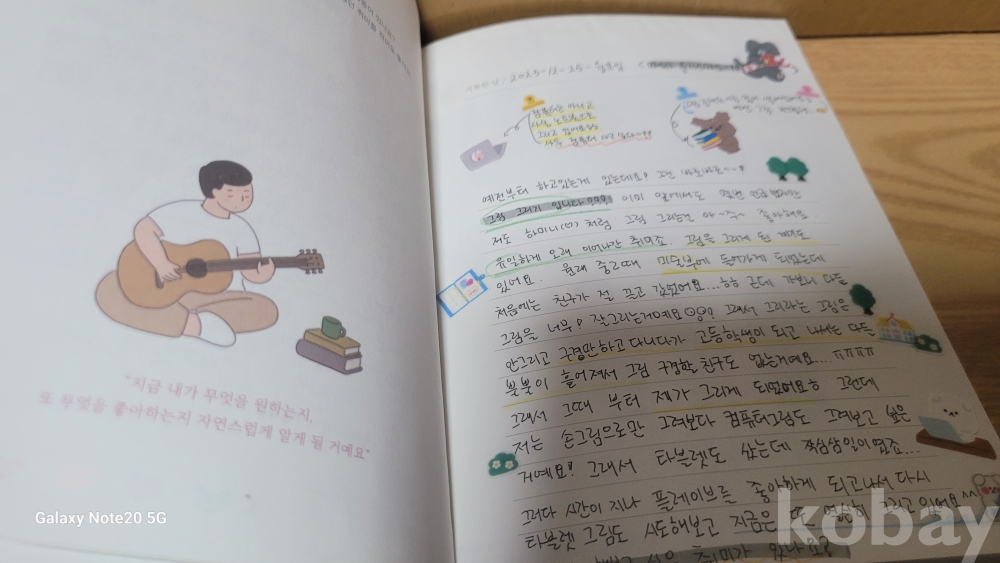 "지금 내가 무엇을 원하는지,
또 무엇을 좋아하는지 자연스럽게 알게 될 거예요"
Galaxy Note20 5G
2023-12-25-월요일
컴퓨터는 아니고
사실 노트북으로
그리고 있어요
사실 컴퓨터
예전부터 하고있는게 있는데요!
그림 그리기 입니다 이미 앞에서도
저도 하미니(면) 처럼 그림 그리는걸 아~주~ 좋아해요
유일하게 오래 이어나간 취미죠. 그림을 그리게 된 계기도
있어요. 원래 중2때 미술부에 들어가게 되었는데
처음에는 친구가 절 끌고 갔었어요...ㅎㅎ 근데 가보니 다들
그림을 너무! 잘그리는거예요 그래서 그리라는 그림은
안그리고 구경만하고 다니다가 고등학생이 되고 나서는 다들
뿔뿔이 흩어져서 그림 구경할 친구도 없는거예요...ㅠㅠㅠㅠ
그래서 그때 부터 제가 그리게 되었어요ㅎ 그런데
저는 손그림으로만 그려보다 컴퓨터그림도 그려보고 싶은
거예요! 그래서 타블렛도 샀는데 작심삼일이였죠...
그러다 시간이 지나 플레이브를 좋아하게 되고나서 다시
타블렛 그림도 시도해보고 지금은 또 열심히 그리고 있어요^^
취미가 있나요?
kobay